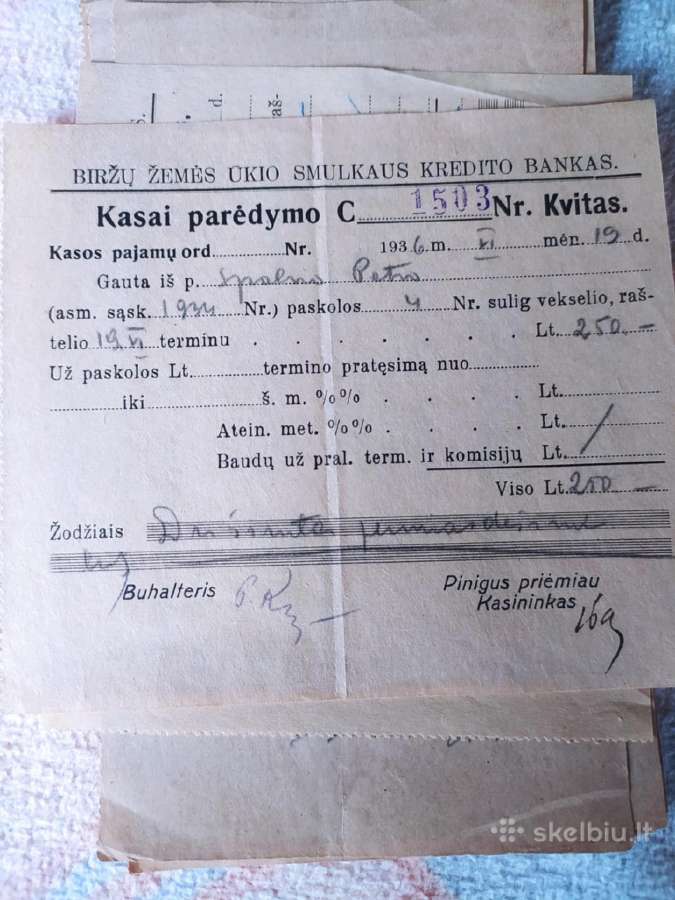 BIRŽŲ ŽEMĖS ŪKIO SMULKAUS KREDITO BANKAS.
Kasai parėdymo C 1503 Nr. Kvitas.
Kasos pajamų ord. Nr. 1936 m. VI mėn. 19 d.
Gauta iš p. Petro
(asm. sąsk. 1934 Nr.) paskolos 4 Nr. sulig vekselio, raš-
telio 19 VI terminu Lt. 250 —
Už paskolos Lt. termino pratęsimą nuo
iki š. m. %%  Lt.
Atein. met. %% Lt.
Baudų už pral. term. ir komisijų Lt. /
Viso Lt. 250 —
Žodžiais Du šimtai penkiasdešimt
Buhalteris
Pinigus priėmiau
Kasininkas
skelbiu.lt